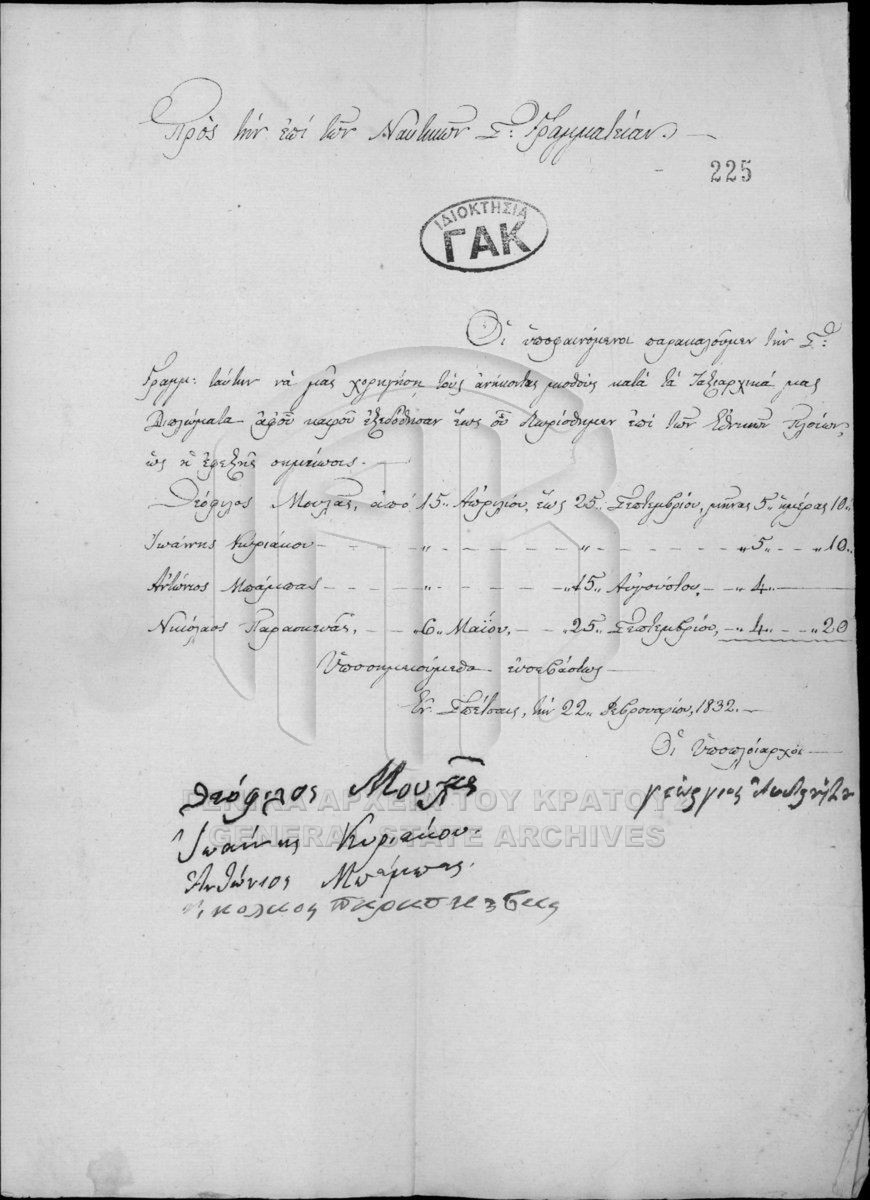 Πρὸς τὴν ἐπὶ τῶν Ναυτικῶν Σ: Γραμματείαν.
225
ΙΔΙΟΚΤΗΣΙΑ
ΓΑΚ
Οἱ ὑποφαινόμενοι παρακαλοῦμεν τὴν Σ:
Γραμμ: ταύτην νὰ μᾶς χορηγήσῃ τοὺς ἀνήκοντας μισθοὺς κατὰ τὰ Ταξιαρχικά μας
Διπλώματα ἀφοῦ καιροῦ ἐξεδόθησαν ἕως οὗ διωρίσθημεν ἐπὶ τῶν Ἐθνικῶν Πλοίων,
ὡς ἡ ἐφεξῆς σημείωσις.
Θεόφιλος Μουλᾶς, ἀπὸ 15 Ἀπριλίου, ἕως 25 Σεπτεμβρίου, μῆνας 5 ἡμέρας 10
Ἰωάννης Κυριάκου - " - " - " 5 - " 10
Ἀντώνιος Μπάμπας - " - " 15 Αὐγούστου, - " 4
Νικόλαος Παρασκευᾶς, - " 6 Μαΐου, - " 25 Σεπτεμβρίου, - " 4 - " 20
Ὑποσημειούμεθα εὐσεβάστως
Ἐν Σπέτσαις, τὴν 22 Φεβρουαρίου, 1832.
Οἱ Ὑποπλοίαρχοι
θεόφιλος Μουλᾶς
γεώργιος
Ἰωάννης Κυριάκου
Ἀνθώνιος Μπάμπας
νικολαος παρασκεβας
ΓΕΝΙΚΑ ΑΡΧΕΙΑ ΤΟΥ ΚΡΑΤΟΥΣ
GENERAL STATE ARCHIVES